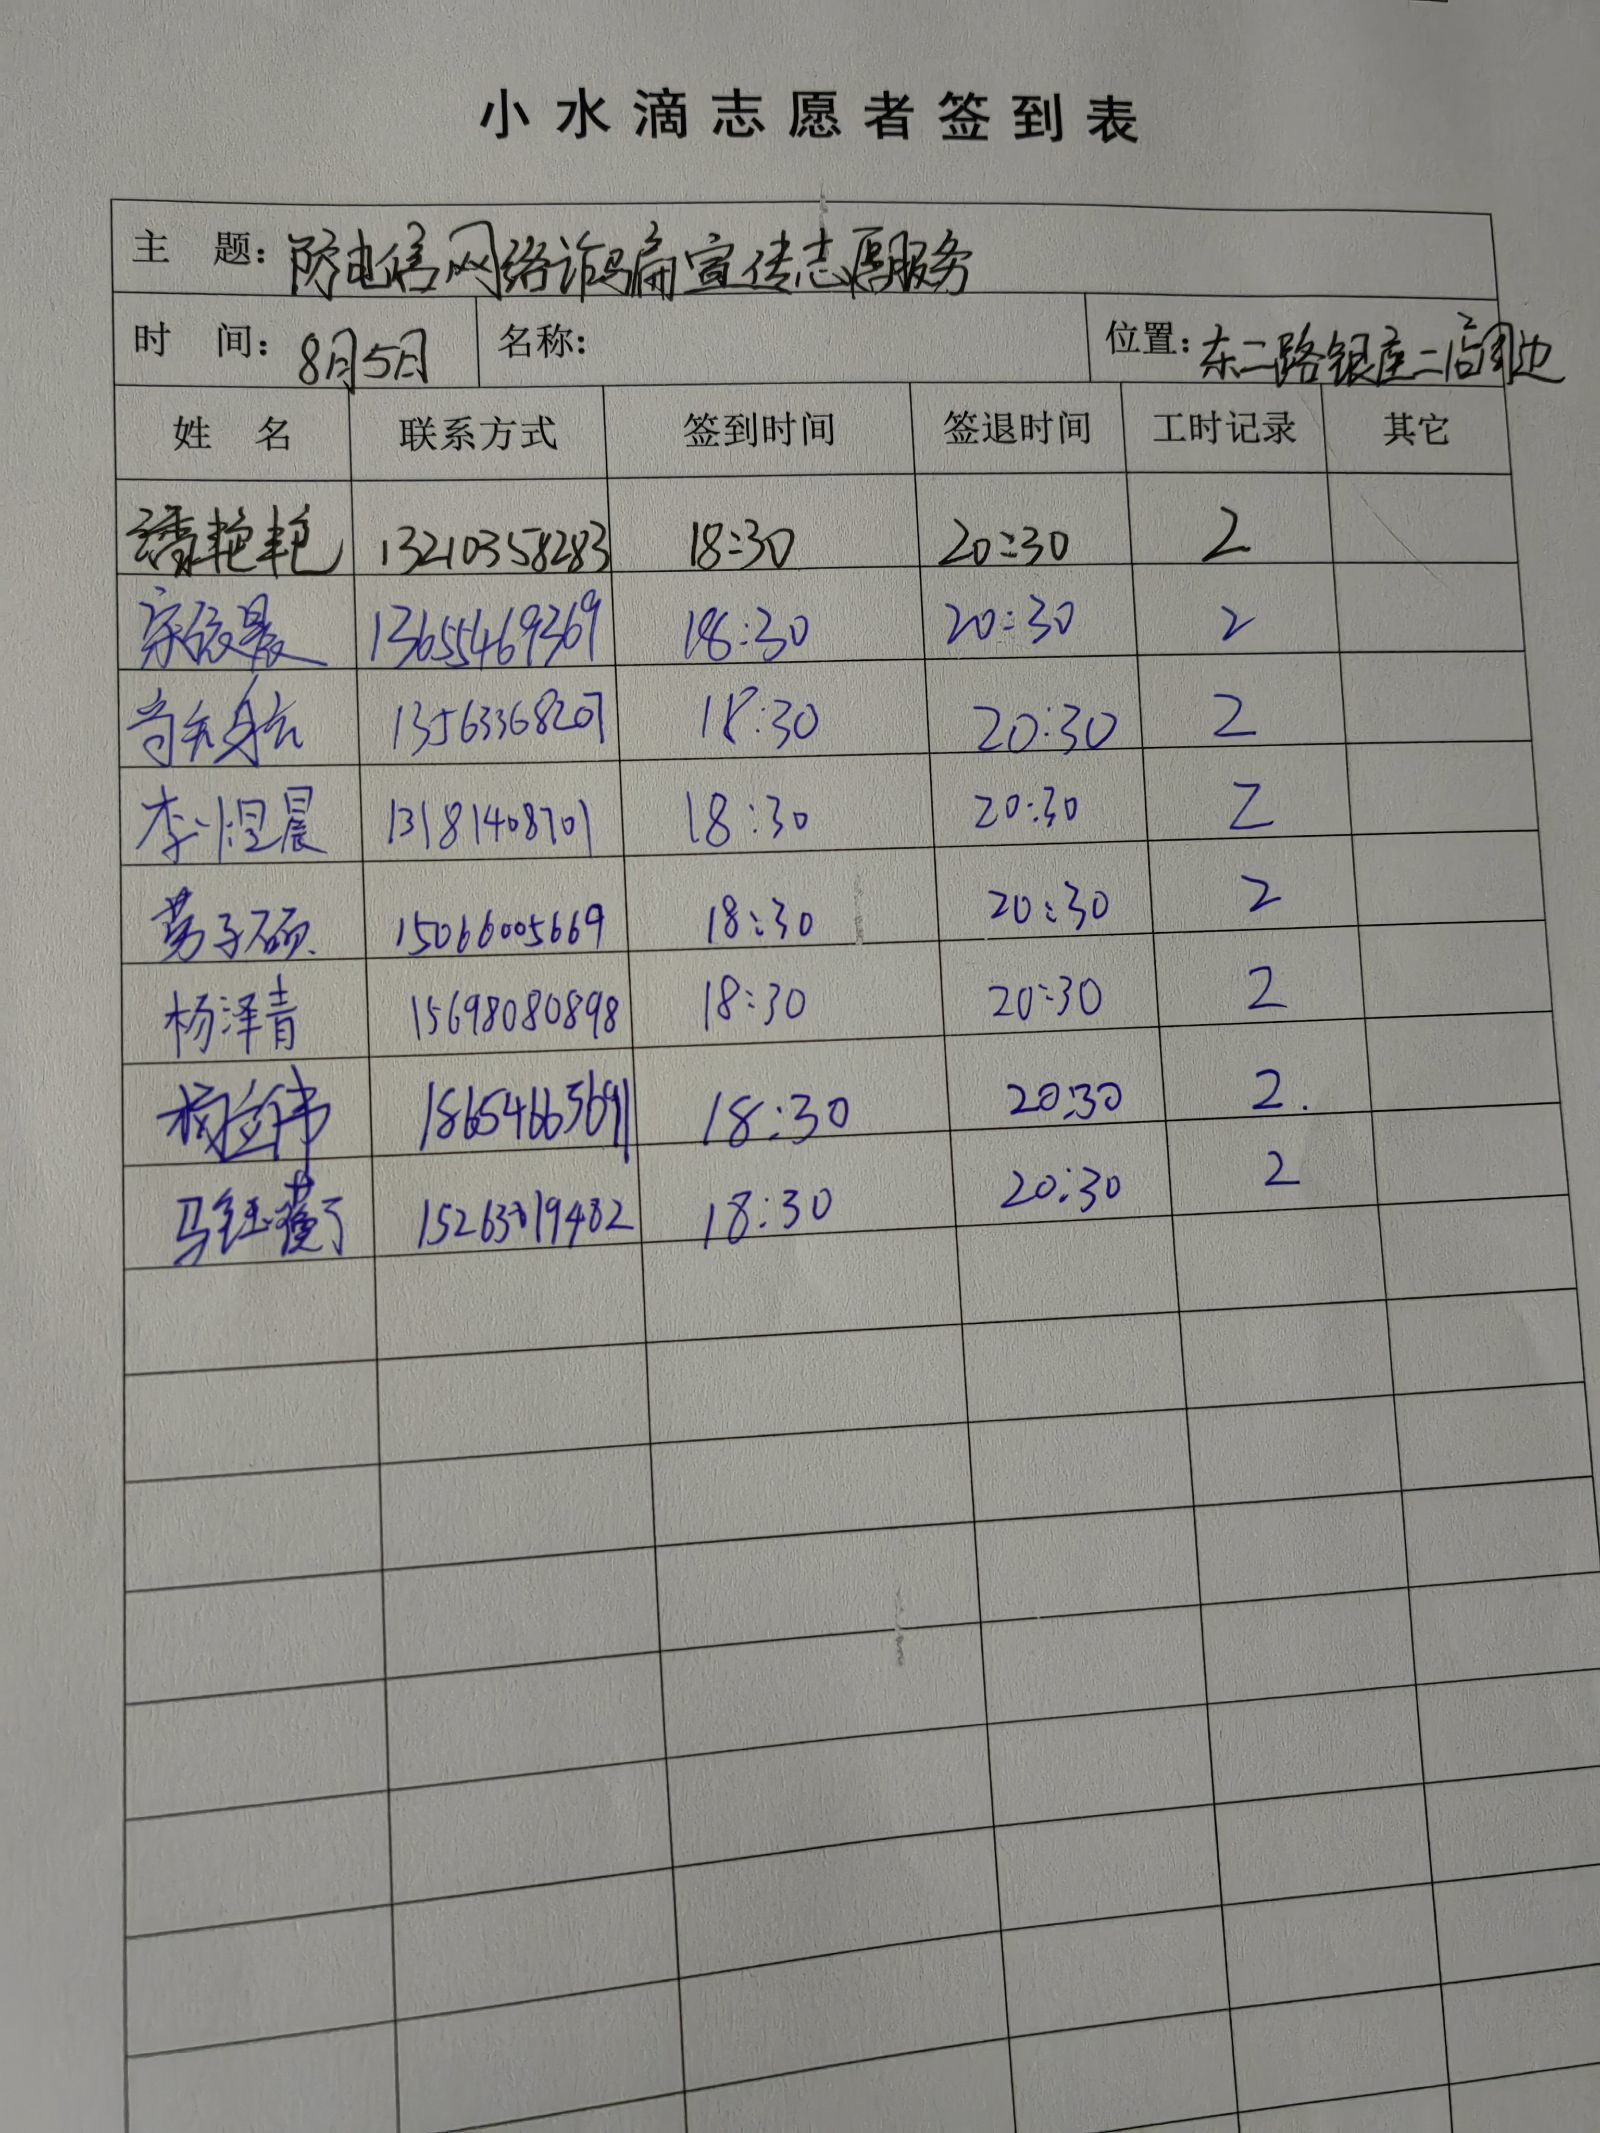 小水滴志愿者签到表
主 题: 防电信网络诈骗宣传志愿服务
时 间: 8月5日 名称: 位置: 东二路银座二店周边
姓 名 联系方式 签到时间 签退时间 工时记录 其它
艳艳 13210358283 18:30 20:30 2
宋依晨 13655469369 18:30 20:30 2
13563368207 18:30 20:30 2
李煜晨 13181408701 18:30 20:30 2
子硕 15066005669 18:30 20:30 2
杨泽青 15698080898 18:30 20:30 2
18654665691 18:30 20:30 2.
马钰 15263819482 18:30 20:30 2